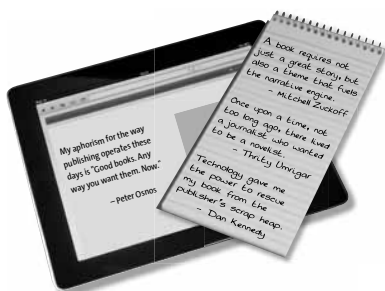 My aphorism for the way
publishing operates these
days is "Good books. Any
way you want them. Now."
–Peter Osnos
A book requires not
just a great story, but
also a theme that fuels
the narrative engine.
– Mitchell Zuckoff
Once upon a time, not
too long ago, there lived
a journalist who wanted
to be a novelist.
– Thrity Umrigar
Technology gave me
the power to rescue
my book from the
publisher's scrap heap.
– Dan Kennedy